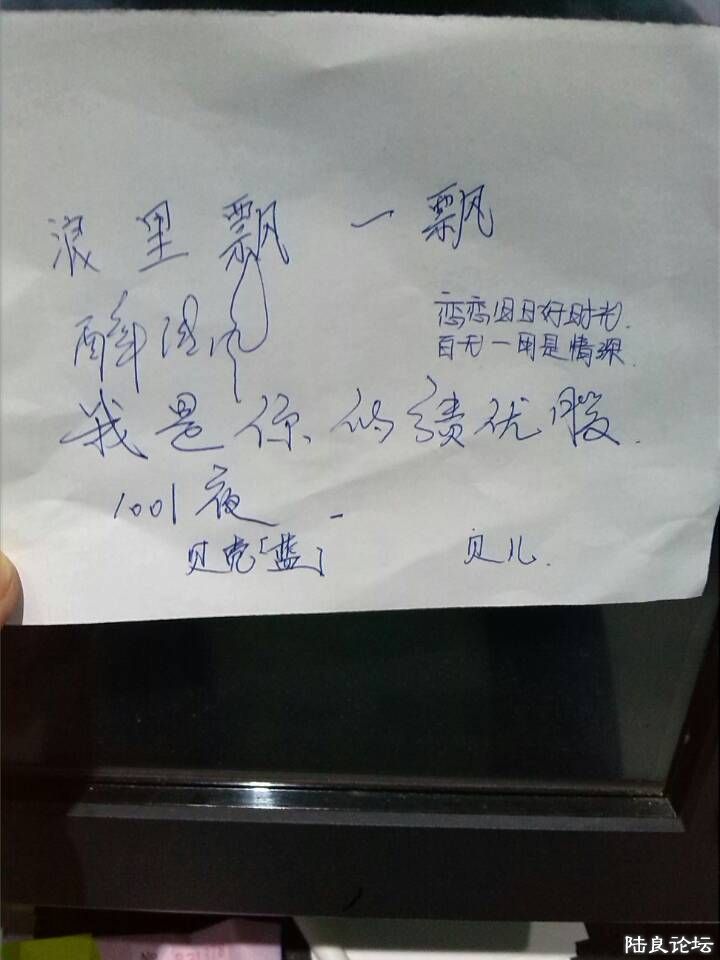 浪里飘一飘
醉清风
恋恋旧日好时光.
百无一用是情深.
我是你的绩优股.
1001夜 -
贝壳「蓝」 贝儿.
陆良论坛